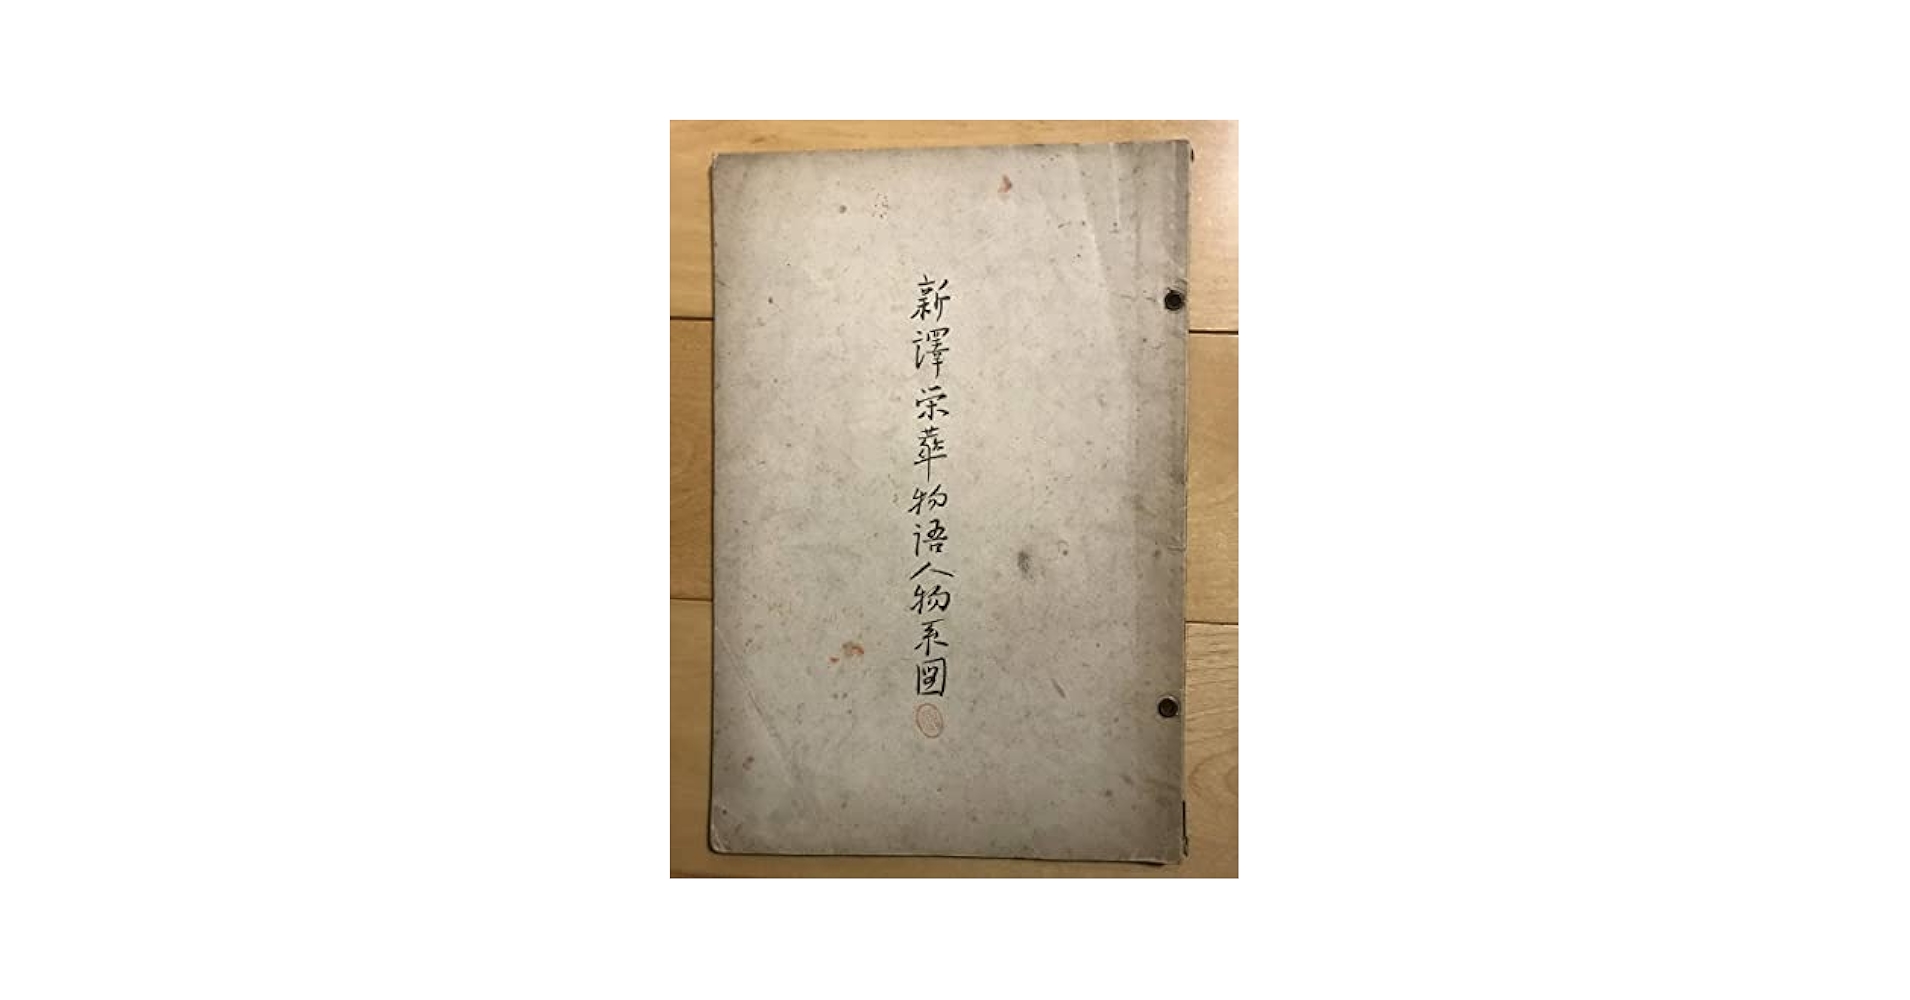 新譯栄華物语人物系図